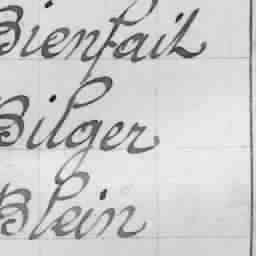 Bienfait
Bilger
Blein